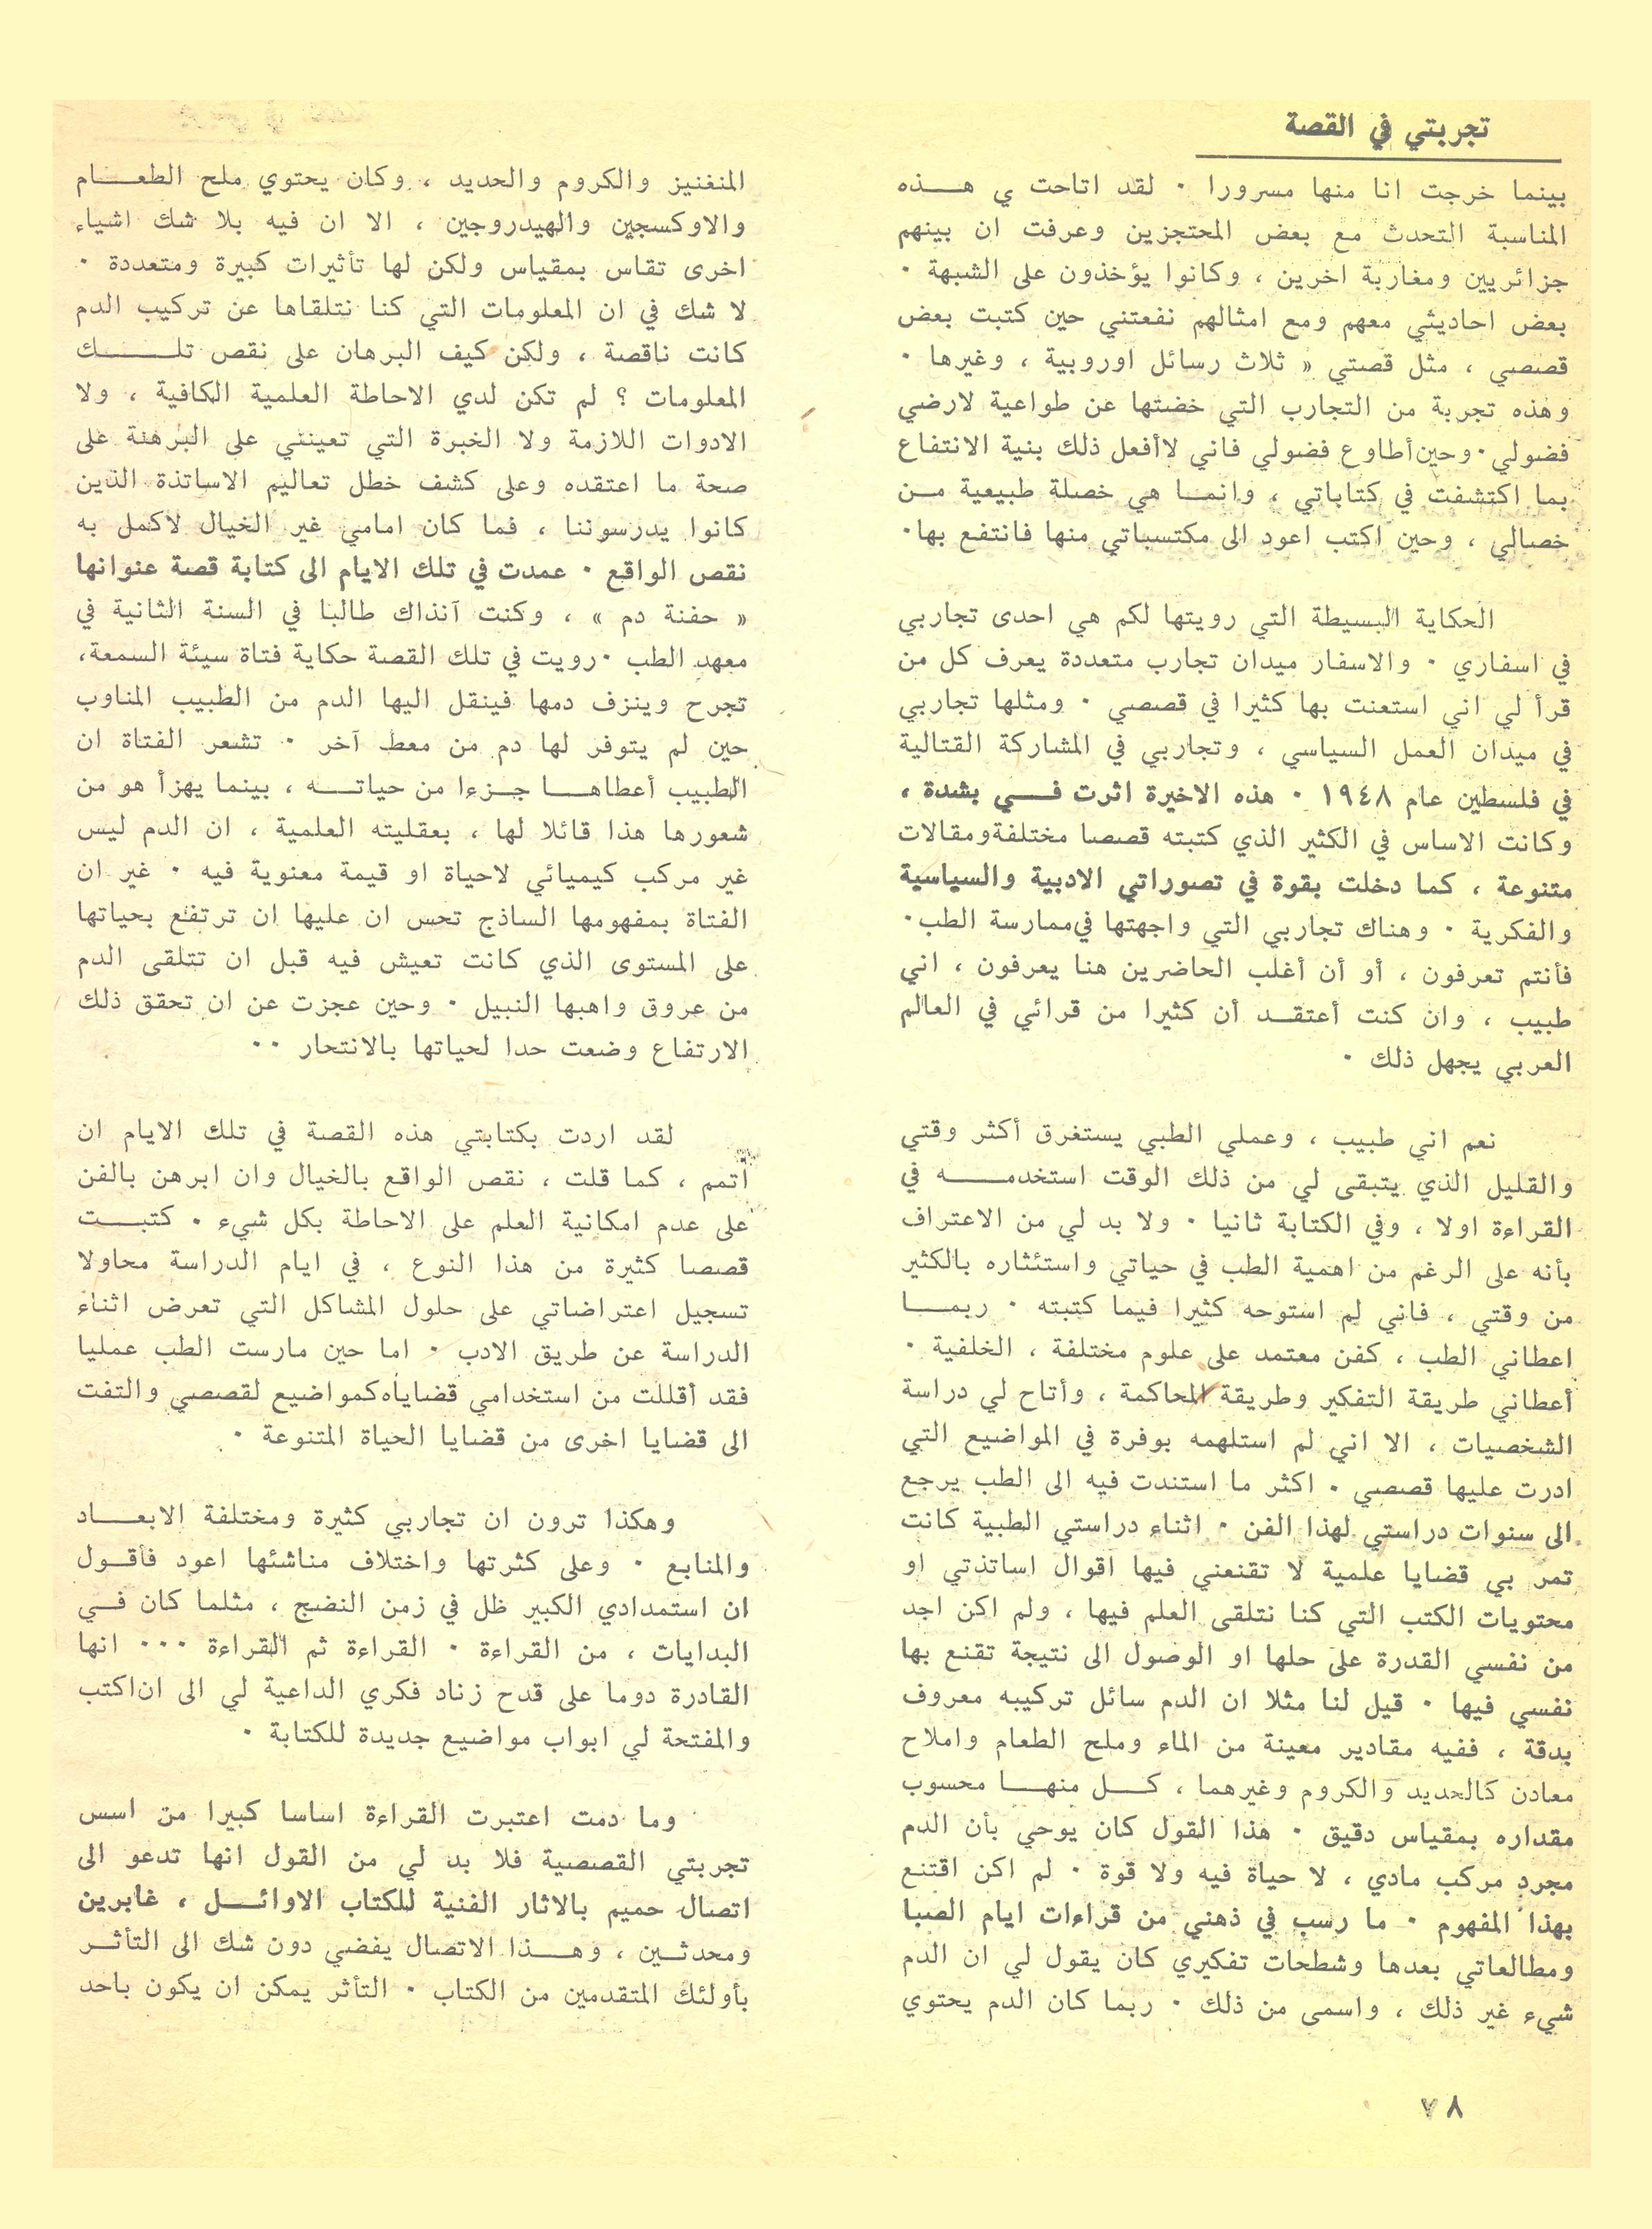 تجربتي في القصة
بينما خرجت انا منها مسرورا . لقد اتاحت ي هـــذه
المناسبة التحدث مع بعض المحتجزين وعرفت ان بينهم
جزائريين ومغاربة اخرين ، وكانوا يؤخذون على الشبهة .
بعض احاديثي معهم ومع امثالهم نفعتني حين كتبت بعض
قصصي ، مثل قصتي « ثلاث رسائل اوروبية ، وغيرها .
وهذه تجربة من التجارب التي خضتها عن طواعية لارضي
فضولي . وحين أطاوع فضولي فاني لاأفعل ذلك بنية الانتفاع
بما اكتشفت في كتاباتي ، وانمـا هي خصلة طبيعية مـن
خصالي ، وحين اكتب اعود الى مكتسباتي منها فانتفع بها .
الحكاية البسيطة التي رويتها لكم هي احدى تجاربي
في اسفاري . والاسفار ميدان تجارب متعددة يعرف كل من
قرأ لي اني استعنت بها كثيرا في قصصي . ومثلها تجاربي
في ميدان العمل السياسي ، وتجاربي في المشاركة القتالية
في فلسطين عام ١٩٤٨ . هذه الاخيرة اثرت فـــي بشدة ،
وكانت الاساس في الكثير الذي كتبته قصصا مختلفة ومقالات
متنوعة ، كما دخلت بقوة في تصوراتي الادبية والسياسية
والفكرية . وهناك تجاربي التي واجهتها في ممارسة الطب .
فأنتم تعرفون ، أو أن أغلب الحاضرين هنا يعرفون ، اني
طبيب ، وان كنت أعتقـد أن كثيرا من قرائي في العالم
العربي يجهل ذلك .
نعم اني طبيب ، وعملي الطبي يستغرق أكثر وقتي
والقليل الذي يتبقى لي من ذلك الوقت استخدمـــــه في
القراءة اولا ، وفي الكتابة ثانيا . ولا بد لي من الاعتراف
بأنه على الرغم من اهمية الطب في حياتي واستئثاره بالكثير
من وقتي ، فاني لم استوحه كثيرا فيما كتبته . ربمـــا
اعطاني الطب ، كفن معتمد على علوم مختلفة ، الخلفية .
أعطاني طريقة التفكير وطريقة المحاكمة ، وأتاح لي دراسة
الشخصيات ، الا اني لم استلهمه بوفرة في المواضيع التي
ادرت عليها قصصي . اكثر ما استندت فيه الى الطب يرجع
الى سنوات دراستي لهذا الفن . اثناء دراستي الطبية كانت
تمر بي قضايا علمية لا تقنعني فيها اقوال اساتذتي او
محتويات الكتب التي كنا نتلقى العلم فيها ، ولم اكن اجد
من نفسي القدرة على حلها او الوصول الى نتيجة تقنع بها
نفسي فيها . قيل لنا مثلا ان الدم سائل تركيبه معروف
بدقة ، ففيه مقادير معينة من الماء وملح الطعام واملاح
معادن كالحديد والكروم وغيرهما ، كـــل منهـــا محسوب
مقداره بمقياس دقيق . هذا القول كان يوحي بأن الدم
مجرد مركب مادي ، لا حياة فيه ولا قوة . لم اكن اقتنع
بهذا المفهوم . ما رسب في ذهني من قراءات ايام الصبا
ومطالعاتي بعدها وشطحات تفكيري كان يقول لي ان الدم
شيء غير ذلك ، واسمى من ذلك . ربما كان الدم يحتوي
المنغنيز والكروم والحديد ، وكان يحتوي ملح الطعــــام
والاوكسجين والهيدروجين ، الا ان فيه بلا شك اشياء
اخرى تقاس بمقياس ولكن لها تأثيرات كبيرة ومتعددة .
لا شك في ان المعلومات التي كنا نتلقاها عن تركيب الدم
كانت ناقصة ، ولكن كيف البرهان على نقص تلـــــك
المعلومات ؟ لم تكن لدي الاحاطة العلمية الكافية ، ولا
الادوات اللازمة ولا الخبرة التي تعينني على البرهنة على
صحة ما اعتقده وعلى كشف خطل تعاليم الاساتذة الذين
كانوا يدرسوننا ، فما كان امامي غير الخيال لاكمل به
نقص الواقع . عمدت في تلك الايام الى كتابة قصة عنوانها
« حفنة دم » ، وكنت آنذاك طالبا في السنة الثانية في
معهد الطب . رويت في تلك القصة حكاية فتاة سيئة السمعة،
تجرح وينزف دمها فينقل اليها الدم من الطبيب المناوب
حين لم يتوفر لها دم من معط آخر . تشعر الفتاة ان
الطبيب أعطاهـــا جـزءا من حياتـــه ، بينما يهزأ هو من
شعورها هذا قائلا لها ، بعقليته العلمية ، ان الدم ليس
غير مركب كيميائي لاحياة او قيمة معنوية فيه . غير ان
الفتاة بمفهومها الساذج تحس ان عليها ان ترتفع بحياتها
على المستوى الذي كانت تعيش فيه قبل ان تتلقى الدم
من عروق واهبها النبيل . وحين عجزت عن ان تحقق ذلك
الارتفاع وضعت حدا لحياتها بالانتحار . .
لقد اردت بكتابتي هذه القصة في تلك الايام ان
أتمم ، كما قلت ، نقص الواقع بالخيال وان ابرهن بالفن
على عدم امكانية العلم على الاحاطة بكل شيء . كتبـــت
قصصا كثيرة من هذا النوع ، في ايام الدراسة محاولا
تسجيل اعتراضاتي على حلول المشاكل التي تعرض اثناء
الدراسة عن طريق الادب . اما حين مارست الطب عمليا
فقد أقللت من استخدامي قضاياه كمواضيع لقصصي والتفت
الى قضايا اخرى من قضايا الحياة المتنوعة .
وهكذا ترون ان تجاربي كثيرة ومختلفة الابعـــاد
والمنابع . وعلى كثرتها واختلاف مناشئها اعود فأقـول
ان استمدادي الكبير ظل في زمن النضج ، مثلما كان فـي
البدايات ، من القراءة . القراءة ثم القراءة . . . انها
القادرة دوما على قدح زناد فكري الداعية لي الى ان اكتب
والمفتحة لي ابواب مواضيع جديدة للكتابة .
وما دمت اعتبرت القراءة اساسا كبيرا من اسس
تجربتي القصصية فلا بد لي من القول انها تدعو الى
اتصال حميم بالاثار الفنية للكتاب الاوائــل ، غابرين
ومحدثـين ، وهـــذا الاتصال يفضي دون شك الى التأثـر
بأولئك المتقدمين من الكتاب . التأثر يمكن ان يكون باحد
٧٨